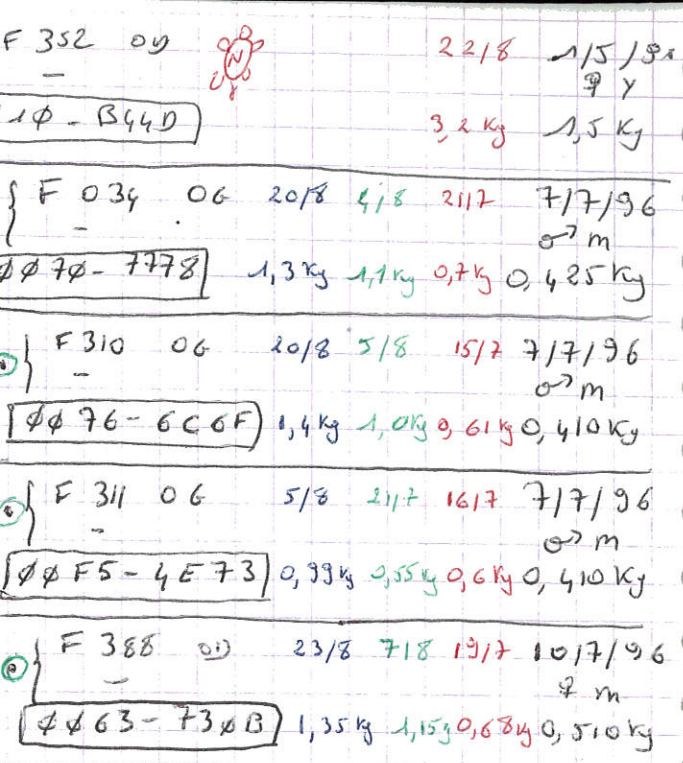 F 352 OD 22/8 1/5/9
N ♀ Y
10 - B44D 3,2 Kg 1,5 Kg
F 034 OG 20/8 4/8 21/7 7/7/96
♂ m
ØØ7Ø - 7778 1,3 Kg 1,1 Kg 0,7 Kg 0,425 Kg
F 310 OG 20/8 5/8 15/7 7/7/96
♂ m
ØØ76 - 6C6F 1,4 Kg 1,0 Kg 0,61 Kg 0,410 Kg
F 311 OG 5/8 21/7 16/7 7/7/96
♂ m
ØØF5 - 4E73 0,99 Kg 0,55 Kg 0,6 Kg 0,410 Kg
F 388 OD 23/8 7/8 19/7 10/7/96
♀ m
ØØ63 - 73ØB 1,35 Kg 1,15 0,68 Kg 0,510 Kg